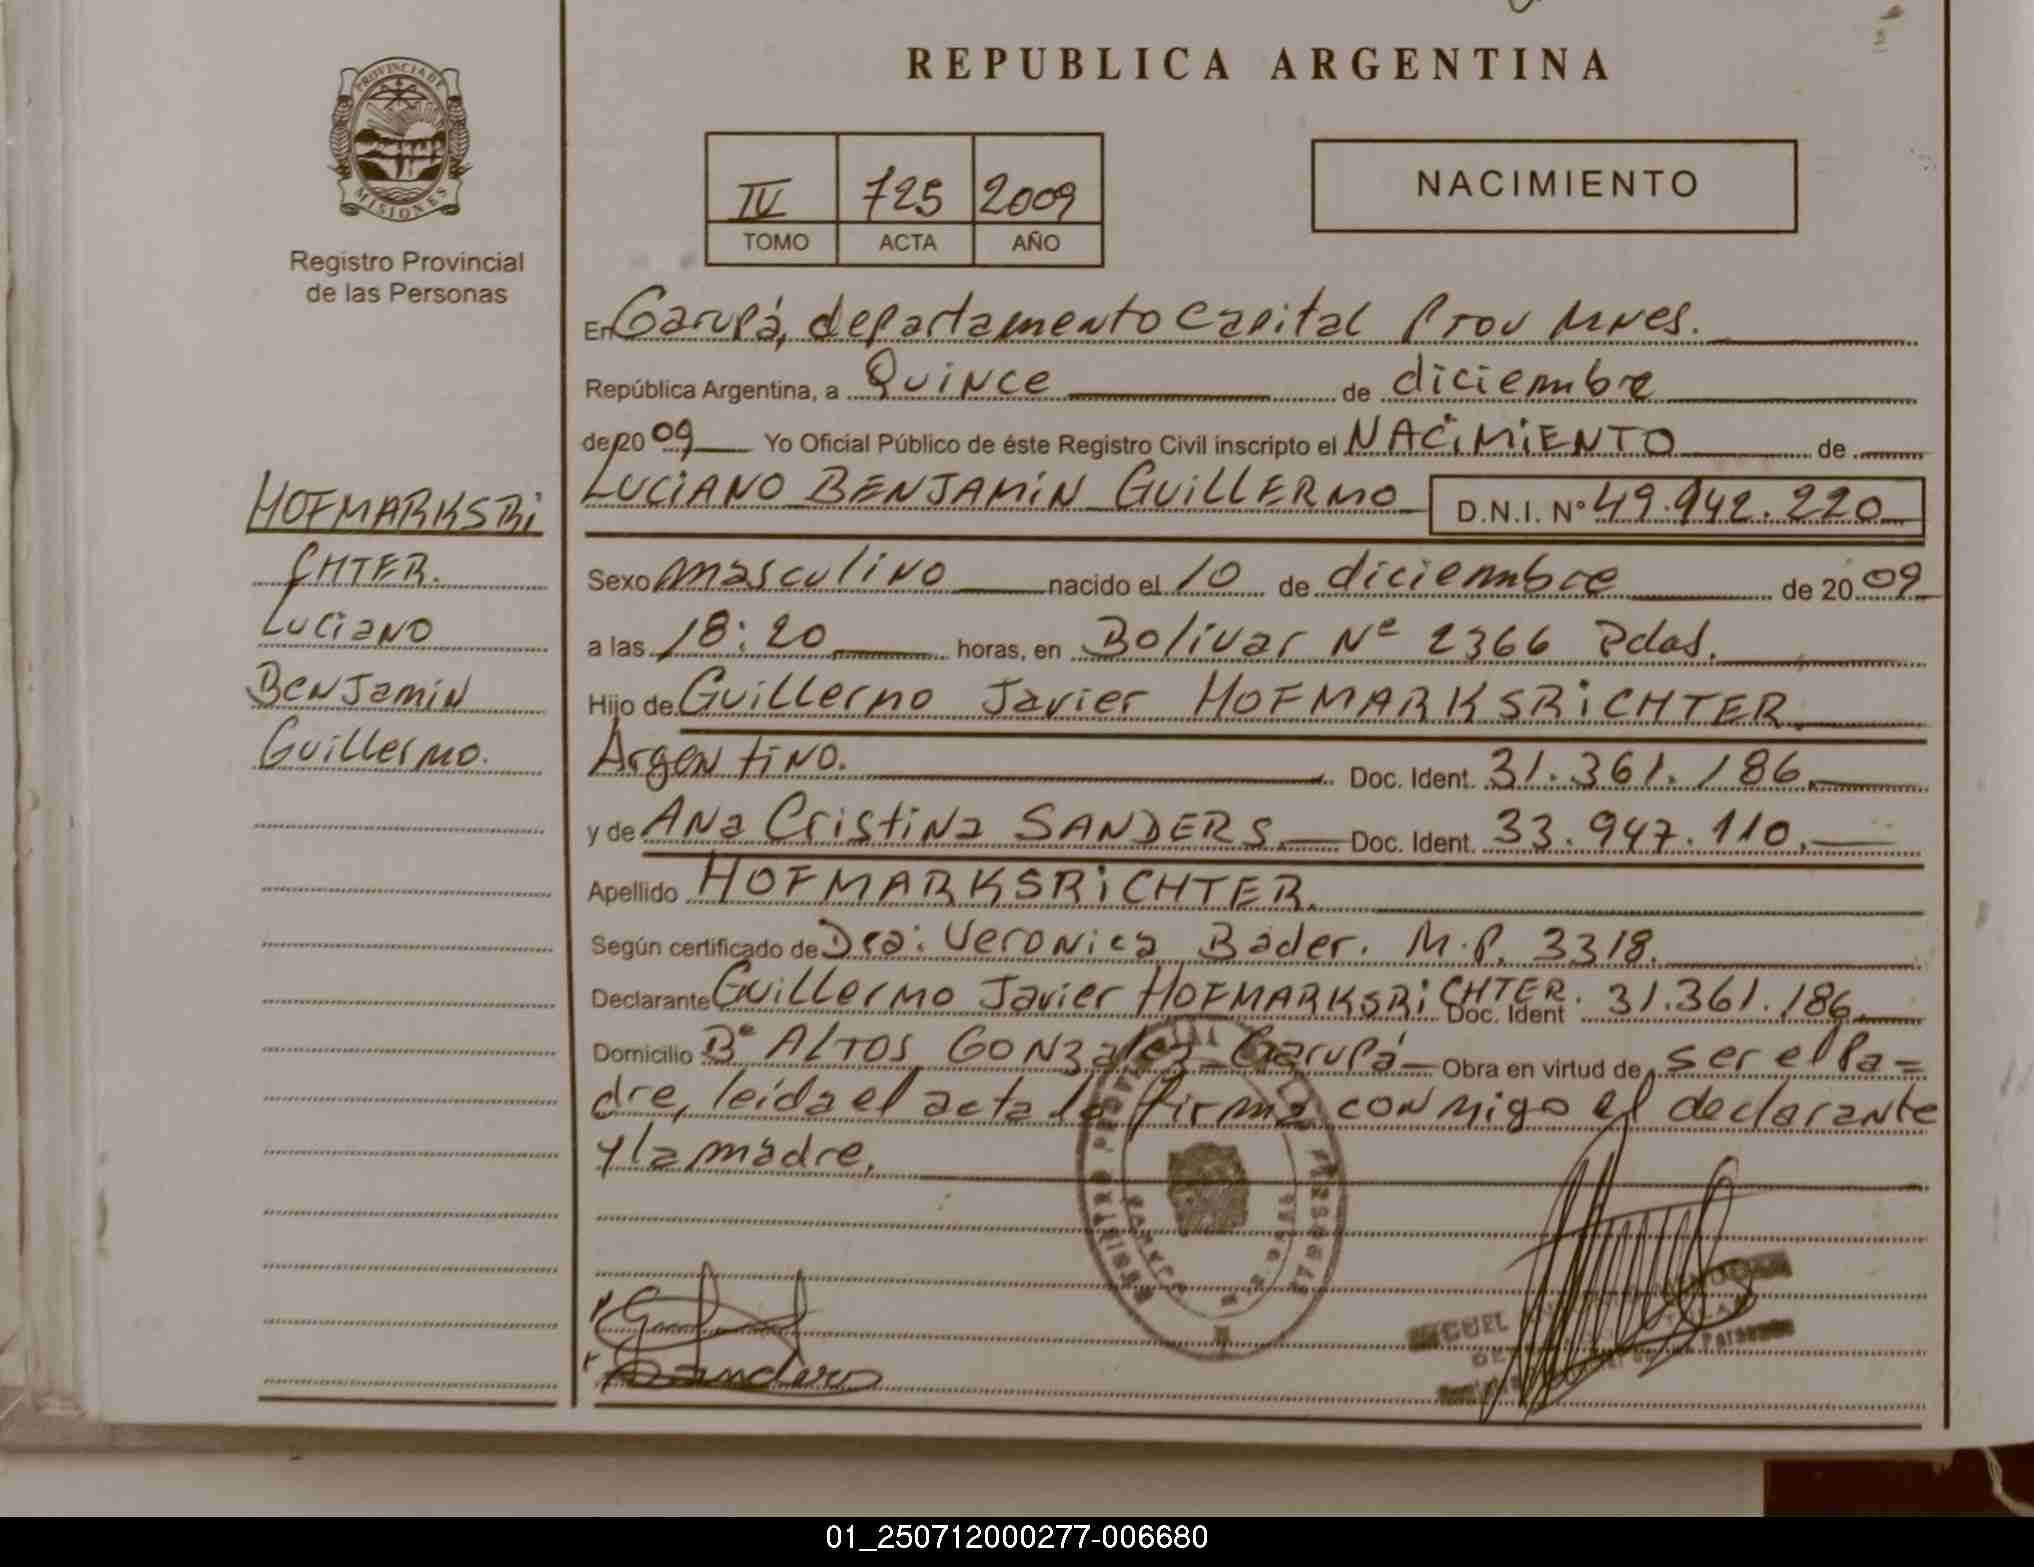 REPUBLICA ARGENTINA
PROVINCIA DE
MISIONES
Registro Provincial
de las Personas
IV 725 2009
TOMO ACTA AÑO
NACIMIENTO
En Garupá, departamento Capital Prov Mnes.
República Argentina, a Quince de diciembre
de 2009 Yo Oficial Público de éste Registro Civil inscripto el NACIMIENTO de
LUCIANO BENJAMIN GUILLERMO D.N.I. Nº 49.942.220
HOFMARKSRI
CHTER.
Luciano
Benjamin
Guillermo.
Sexo masculino nacido el 10 de diciembre de 2009
a las 18:20 horas, en Bolivar Nº 2366 Pdas.
Hijo de Guillermo Javier HOFMARKSRiCHTER
Argentino. Doc. Ident. 31.361.186
y de Ana Cristina SANDERS Doc. Ident. 33.947.110
Apellido HOFMARKSRiCHTER.
Según certificado de Dra: Veronica Bader. M.P. 3318.
Declarante Guillermo Javier HOFMARKSRiCHTER. Doc. Ident 31.361.186
Domicilio Bº ALTOS Gonzalez - Garupá Obra en virtud de ser el Pa=
dre, leída el acta la firma conmigo el declarante
y la madre.
Sanders
01_250712000277-006680